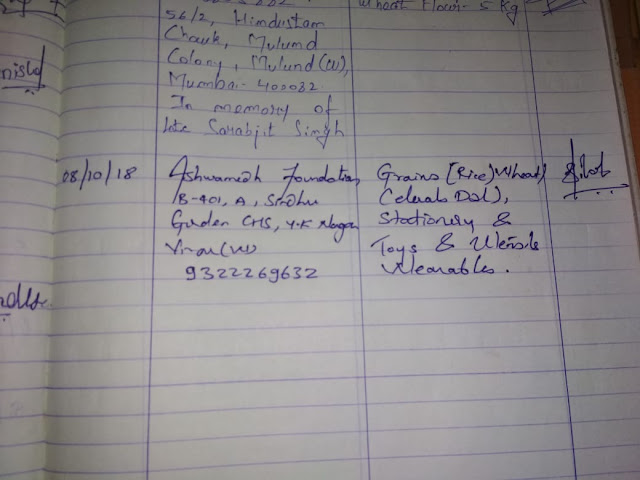 Wheat Flour - 5 Kg
56/2, Hindustan
Chawk, Mulund
Colony, Mulund (W),
Mumbai - 400082
In memory of
late Sarabjit Singh
08/10/18
Ashwamedh Foundation,
B-401, A, Sindhu
Garden CHS, Y.K Nagar
Virar (W)
9322269632
Grains [(Rice) Wheat)
Cereals Dal),
Stationery &
Toys & Utensils
Wearables.